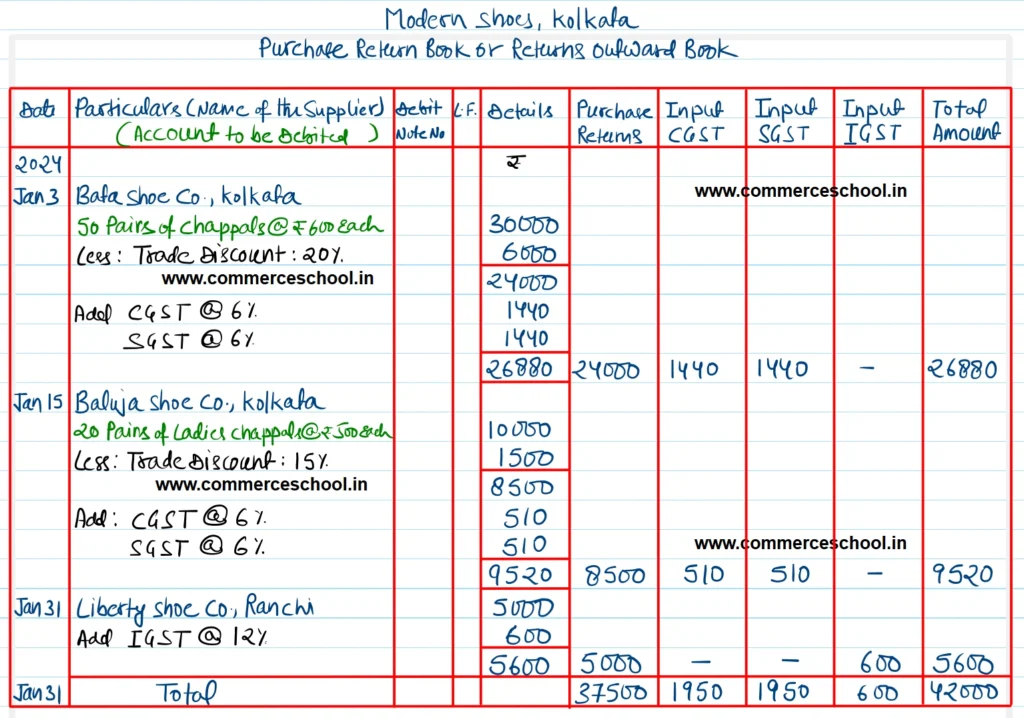 Modern Shoes, Kolkata
Purchase Return Book or Returns Outward Book
Date Particulars (Name of the Supplier) Debit L.F. Details Purchase Input Input Input Total
(Account to be Debited) Note No Returns CGST SGST IGST Amount
2024 ₹
Jan 3 Bata Shoe Co., Kolkata www.commerceschool.in
50 Pairs of Chappals @ ₹ 600 each 30000
Less: Trade Discount: 20% 6000
www.commerceschool.in 24000
Add CGST @ 6% 1440
SGST @ 6% 1440
26880 24000 1440 1440 - 26880
Jan 15 Baluja Shoe Co., Kolkata
20 Pairs of Ladies Chappals @ ₹ 500 each 10000
Less: Trade Discount: 15% 1500
www.commerceschool.in 8500
Add: CGST @ 6% 510
SGST @ 6% 510 www.commerceschool.in
9520 8500 510 510 - 9520
Jan 31 Liberty Shoe Co., Ranchi 5000
Add IGST @ 12% 600
5600 5000 - - 600 5600
Jan 31 Total 37500 1950 1950 600 42000